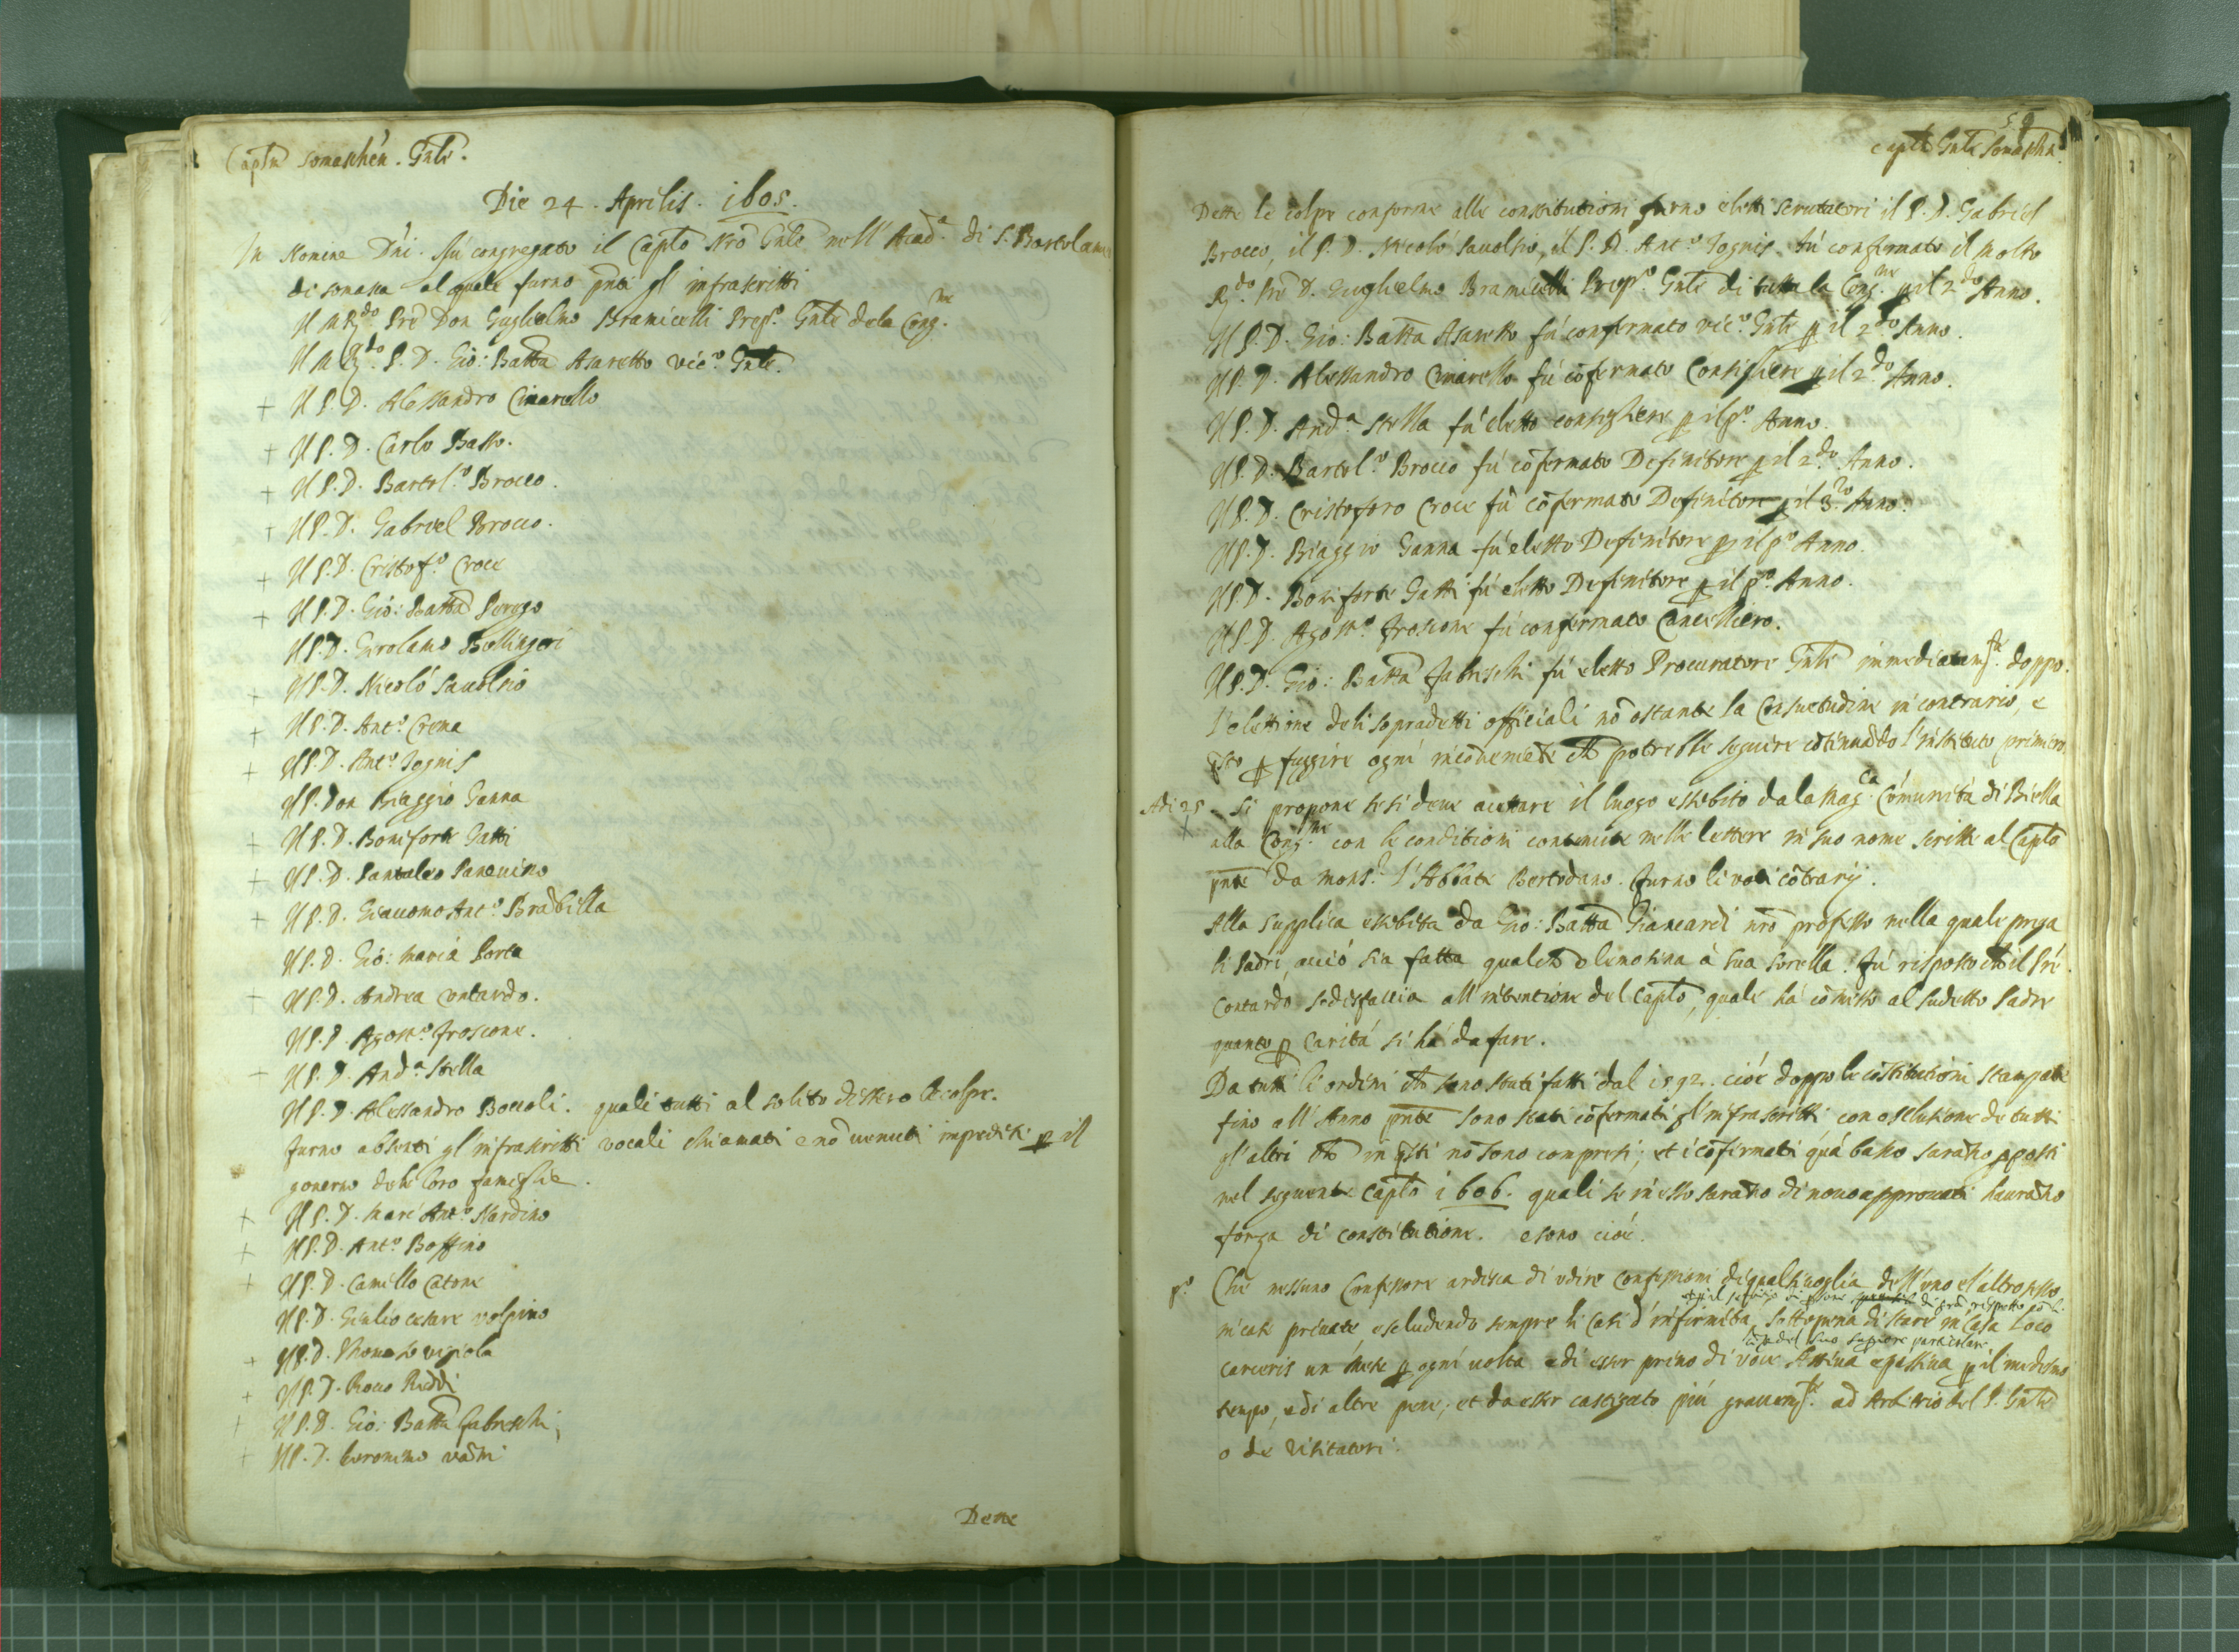 Capto somaschén. Gnle.
Die 24. Aprilis. 1605.
In Nomine D'ni. fú congregato il Capto Nrō Gnle nell' Acad.ª di S. Bartolam
di somasca al quale furno pnti gl' infrascritti
Il M R.do Prē Don Guglielmo Bramicelli Prep.º Gnle dela Cong.ne
Il M R.do P. D. Gio: Batta Assaretto vic.º Gnle.
+ Il P. D. Alessandro Cimarello
+ Il P. D. Carlo Basso.
+ Il P. D. Bartol.º Brocco.
+ Il P. D. Gabriel Brocco.
+ Il P. D. Cristof.º Croce
+ Il P. D. Gió: Batta Perego
Il P. D. Gerolamo Bellingeri
+ Il P. D. Nicoló Sauolsio
+ Il P. D. Ant.º Crema
+ Il P. D. Ant.º Iognis
Il P. Don Biaggio Ganna
+ Il P. D. Boniforte Gatti
+ Il P. D. Pantaleo
+ Il P. D. Giacomo Ant.º Brābilla
Il P. D. Gió: maria Porta
+ Il P. D. Andrea contardo.
Il P. D. Agost.º froscone.
Il P. D. And.ª stella
Il P. D. Alessandro Boccoli. quali tutti al solito dissero le colpe.
furno absenti gl' infrascritti vocali chiamati e nō uenuti impediti p il
gouerno dele loro famiglie.
+ Il P. D. Marc Ant.º Nardino
+ Il P. D. Ant.º Boffino
+ Il P. D. Camillo Catone
Il P. D. Giulio cesare volpino
+ Il P. D. Thomaso
+ Il P. D. Rocco Reddi
+ Il P. D. Gio: Batta fabreschi,
+ Il P. D. Geronimo
Dette
59
capto Gnle Somascha.
Dette le colpe conforme alle constitutioni furno eletti scrutatori il P. D. Gabriel
Brocco, il P. D. Nicoló Sauolsio, il P. D. Ant.º Iognis. fú confirmato il Molto
R.do Prē D. Guglielmo Bramicelli Prep.º Gnle di tutta la Cong.ne p il 2.do Anno.
Il P. D. Gio: Batta Assaretto fú confermato vic.º Gnle p il 2.do Anno.
Il P. D. Alessandro Cimarello fú cōfermato Consigliere p il 2.do Anno.
Il P. D. And.ª stella fú eletto consigliere p il p.º Anno.
Il P. D. Bartol.º Brocco fú cōfermato Definitore p il 2.do Anno.
Il P. D. Cristoforo Croce fú cōfermato Definitore p il 3.º Anno.
Il P. D. Biaggio Ganna fú eletto Definitore p il p.º Anno.
Il P. D. Boniforte Gatti fú eletto Definitore p il p.º Anno.
Il P. D. Agost.º froscone fú confermato Cancelliero.
Il P. D. Gio: Batta fabreschi fú eletto Procuratore Gnle immediatam.te doppo
l'elettione deli sopradetti officiali nō ostante la Consuetudine in contrario, e
qsto p fuggire ogni incōueniēte chē potrebbe seguire cōtinuādo l'instituto primiero
Adi 25 Si propone se si deue accettare il luogo essebito dala Mag.ca Cómunitá di Biella
+ alla Cong.ne con le conditioni contenute nelle lettere in suo nome scritte al Capto
pnte da Mons.r l'Abbate Bertodano. furno li voti cōtrarij.
Alla supplica essebita da Gio: Batta Giancardi nrō professo nella quale prega
li Padri, acció sia fatta qualchē elimosina à sua sorella. Fú risposto chē il Prē
Contardo sodisfaccia all' intentione del Capto, quale há cōmesso al sudetto Padre
quanto p caritá si há da fare.
Da tutti li ordini chē sono stati fatti dal 1592. cióè doppo le cōstitutioni stampate
fino all' Anno pnte sono stati cōfermati gl' infrascritti con esclusione de tutti
gl' altri chē in qsti nō sono compresi; et i cōfirmati quá basso sarāno pposti
nel seguente Capto 1606. quali se in esso sarāno di nouo approuati haurāno
forza di constitutione. e sono cióé.
p.º Che nessuno Confessore ardisca di vdire confessioni di qualsiuoglia dell' uno e l'altro sesso
in case priuate, escludendo sempre li casi d' infirmitá, sotto pena di stare in casa loco
carceris un mese p ogni uolta e di esser priuo di voce Attiua e passiua p il medesmo
tempo, e di altre pene; et da esser castigato piú grauem.te ad Arbitrio del P. Gnle
o de Visitatori.